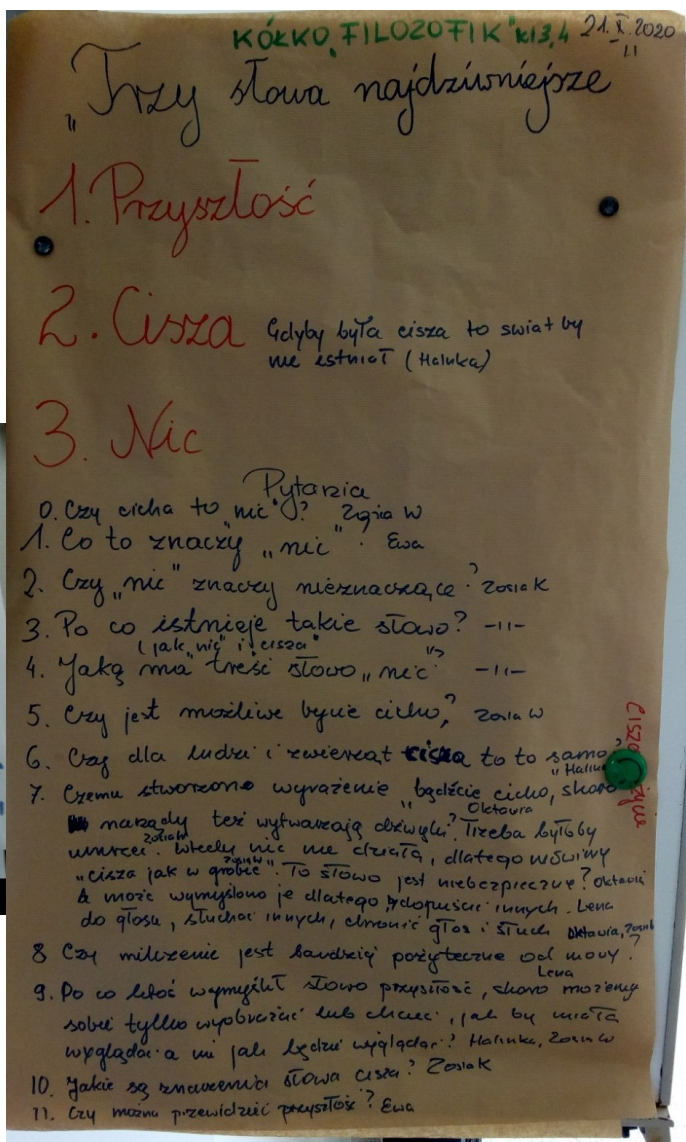 KÓŁKO „FILOZOFIK" kl 3,4 21.X.2020
„Trzy słowa najdziwniejsze
1. Przyszłość
2. Cisza Gdyby była cisza to swiat by
nie istniał (Halinka)
3. Nic
Pytania
0. Czy cicha to „nic"? Zosia W
1. Co to znaczy „nic"? Ewa
2. Czy „nic" znaczy nieznaczące? Zosia K
3. Po co istnieje takie słowo? -11-
(jak „nic" i „cisza"
4. Jaką ma treść słowo „nic"? -11-
5. Czy jest możliwe bycie cicho? Zosia W
6. Czy dla ludzi i zwierząt cisza to to samo?
Halinka
7. Czemu stworzono wyrażenie „bądźcie cicho, skoro
Oktawia
narządy też wytwarzają dźwięki? Trzeba byłoby
Zosia W
umrzeć. Wtedy nic nie działa, dlatego mówimy
Zosia W
„cisza jak w grobie". To słowo jest niebezpieczne? Oktawia
A może wymyślono je dlatego, dopuścić innych Lena
do głosu, słuchać innych, chronić głos i słuch Oktawia, Zosia
8 Czy milczenie jest bardziej pożyteczne od mowy?
Lena
9. Po co ktoś wymyślił słowo przyszłość, skoro możemy
sobie tylko wyobrażać lub chcieć, jak by miała
wyglądać a nie jak będzie wyglądać? Halinka, Zosia W
10. Jakie są znaczenia słowa cisza? Zosia K
11. Czy można przewidzieć przyszłość? Ewa
życie